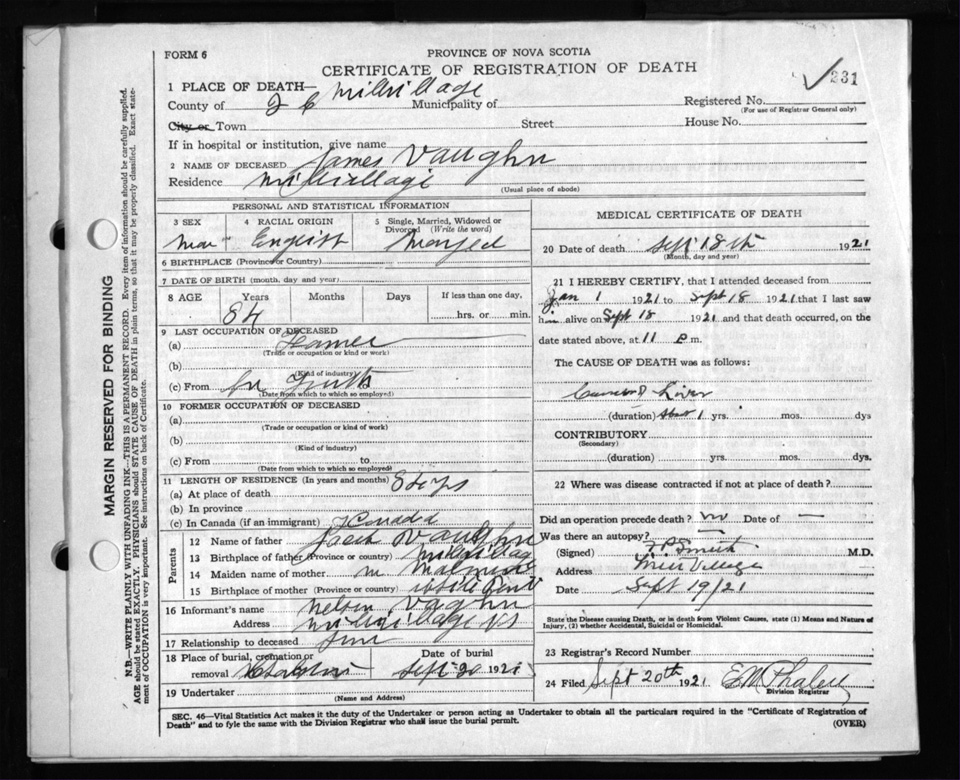 FORM 6
PROVINCE OF NOVA SCOTIA
CERTIFICATE OF REGISTRATION OF DEATH
231
1 PLACE OF DEATH— Millvillage
County of Municipality of Registered No.
(For use of Registrar General only)
City or Town Street House No.
If in hospital or institution, give name
2 NAME OF DECEASED James Vaughn
Residence Millvillage
(Usual place of abode)
PERSONAL AND STATISTICAL INFORMATION
3 SEX 4 RACIAL ORIGIN 5 Single, Married, Widowed or Divorced (Write the word)
English
6 BIRTHPLACE (Province or Country)
7 DATE OF BIRTH (month, day and year)
8 AGE Years Months Days If less than one day,
84 hrs. or min.
9 LAST OCCUPATION OF DECEASED
(a)
(Trade or occupation or kind of work)
(b)
(Kind of industry)
(c) From
(Date from which to which so employed)
10 FORMER OCCUPATION OF DECEASED
(a)
(Trade or occupation or kind of work)
(b)
(Kind of industry)
(c) From to
(Date from which to which so employed)
11 LENGTH OF RESIDENCE (In years and months)
(a) At place of death
(b) In province
(c) In Canada (if an immigrant)
Parents
12 Name of father Vaughn
13 Birthplace of father (Province or country) Millvillage
14 Maiden name of mother
15 Birthplace of mother (Province or country)
16 Informant's name Nelson Vaghn
Address Millvillage NS
17 Relationship to deceased
18 Place of burial, cremation or removal Date of burial Sept 20 1921
19 Undertaker
(Name and Address)
MEDICAL CERTIFICATE OF DEATH
20 Date of death Sept 18th 1921
(Month, day and year)
21 I HEREBY CERTIFY, that I attended deceased from
Jan 1 1921 to Sept 18 1921 that I last saw
him alive on Sept 18 1921 and that death occurred, on the
date stated above, at 11 P m.
The CAUSE OF DEATH was as follows:
Liver
(duration) about 1 yrs. mos. dys
CONTRIBUTORY
(Secondary)
(duration) yrs. mos. dys.
22 Where was disease contracted if not at place of death?
Did an operation precede death? no Date of —
Was there an autopsy? —
(Signed) Smith M.D.
Address Mill Village
Date Sept 19/21
State the Disease causing Death, or in death from Violent Causes, state (1) Means and Nature of Injury, (2) whether Accidental, Suicidal or Homicidal.
23 Registrar's Record Number
24 Filed Sept 20th 1921 E M Phalen
Division Registrar
SEC. 46—Vital Statistics Act makes it the duty of the Undertaker or person acting as Undertaker to obtain all the particulars required in the "Certificate of Registration of
Death" and to fyle the same with the Division Registrar who shall issue the burial permit. (OVER)
MARGIN RESERVED FOR BINDING
N.B.—WRITE PLAINLY WITH UNFADING INK—THIS IS A PERMANENT RECORD. Every item of information should be carefully supplied.
AGE should be stated EXACTLY. PHYSICIANS should STATE CAUSE OF DEATH in plain terms, so that it may be properly classified. Exact statement of OCCUPATION is very important. See instructions on back of Certificate.